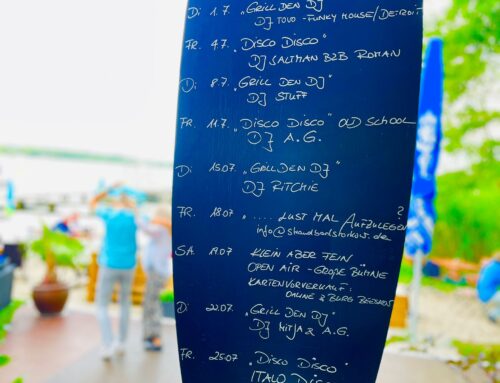 Di 1.7. „Grill den DJ"
DJ Tovo - Funky House/Detroit
Fr. 4.7. „Disco Disco"
DJ Saltman B2B Roman
Di 8.7. „Grill den DJ"
DJ Stuff
Fr. 11.7. „Disco Disco" Old School
DJ A.G.
Di 15.07. „Grill den DJ"
DJ Ritchie
Fr. 18.07 „ ..... Lust mal aufzulegen?
info@strandbarstorkow.de
Sa 19.07 Klein aber fein
Open Air - Große Bühne
Kartenvorverkauf:
Online & Burg Beeskow
Di 22.07. „Grill den DJ"
DJ Mitja & A.G.
Fr. 25.07 „Disco Disco"
Italo Disco